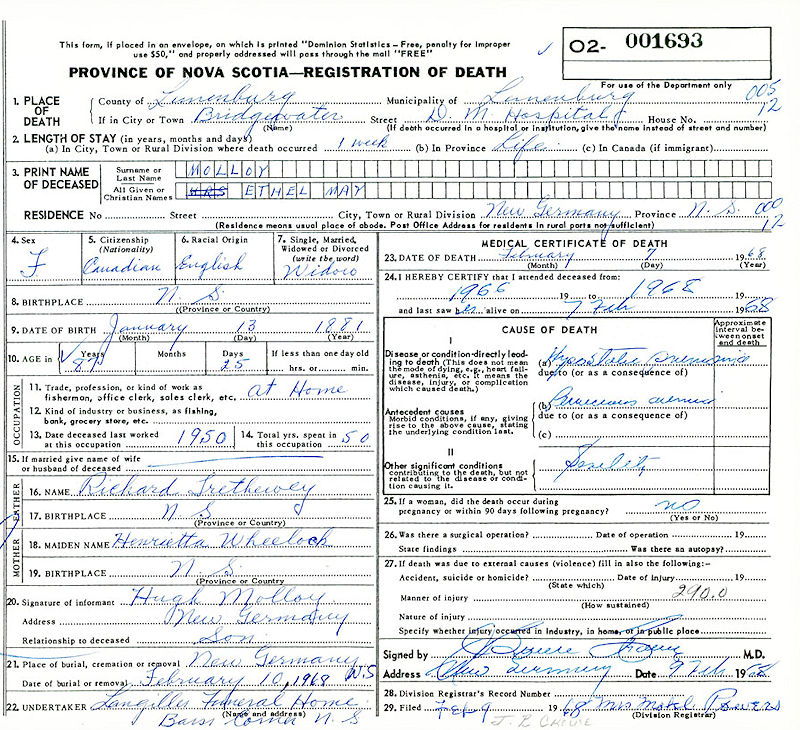 This form, if placed in an envelope, on which is printed "Dominion Statistics - Free, penalty for improper
use $50," and properly addressed will pass through the mail "FREE"
✓ O2- 001693
PROVINCE OF NOVA SCOTIA—REGISTRATION OF DEATH
For use of the Department only
005
12
1. PLACE OF DEATH
County of Lunenburg Municipality of Lunenburg
If in City or Town Bridgewater Street D. M. Hospital House No.
(Name) (If death occurred in a hospital or institution, give the name instead of street and number)
2. LENGTH OF STAY (in years, months and days)
(a) In City, Town or Rural Division where death occurred 1 week (b) In Province Life (c) In Canada (if immigrant)
3. PRINT NAME OF DECEASED
Surname or Last Name MOLLOY
All Given or Christian Names MRS ETHEL MAY
RESIDENCE No Street City, Town or Rural Division New Germany Province N. S. 000
12
(Residence means usual place of abode. Post Office Address for residents in rural parts not sufficient)
4. Sex F
5. Citizenship (Nationality) Canadian
6. Racial Origin English
7. Single, Married, Widowed or Divorced (write the word) Widow
8. BIRTHPLACE N. S
(Province or Country)
9. DATE OF BIRTH January 13 1881
(Month) (Day) (Year)
10. AGE in Years 87 Months Days 25 If less than one day old
hrs. or min.
OCCUPATION
11. Trade, profession, or kind of work as
fisherman, office clerk, sales clerk, etc. at Home
12. Kind of industry or business, as fishing,
bank, grocery store, etc.
13. Date deceased last worked at this occupation 1950 14. Total yrs. spent in this occupation 50
15. If married give name of wife
or husband of deceased
FATHER
16. NAME Richard Trethewey
17. BIRTHPLACE N S
(Province or Country)
MOTHER
18. MAIDEN NAME Henrietta Wheelock
19. BIRTHPLACE N. S
(Province or Country)
20. Signature of informant Hugh Molloy
Address New Germany
Relationship to deceased Son
21. Place of burial, cremation or removal New Germany
Date of burial or removal February 10, 1968 N.S
22. UNDERTAKER Langilles Funeral Home
(Name and address)
Barss Corner N. S
MEDICAL CERTIFICATE OF DEATH
23. DATE OF DEATH February 7 1968
(Month) (Day) (Year)
24. I HEREBY CERTIFY that I attended deceased from:
1966 19 to 1968 19
and last saw her alive on 7 Feb 1968
CAUSE OF DEATH
Approximate interval between onset and death
I
Disease or condition directly leading to death (This does not mean
the mode of dying, e.g., heart failure, asthenia, etc. It means the
disease, injury, or complication
which caused death.)
(a) Hypostatic Pneumonia
due to (or as a consequence of)
Antecedent causes
Morbid conditions, if any, giving
rise to the above cause, stating
the underlying condition last.
(b) Pernicious anemia
due to (or as a consequence of)
(c)
II
Other significant conditions
contributing to the death, but not
related to the disease or condition causing it.
Senility
25. If a woman, did the death occur during
pregnancy or within 90 days following pregnancy? no
(Yes or No)
26. Was there a surgical operation? Date of operation 19
State findings Was there an autopsy?
27. If death was due to external causes (violence) fill in also the following:-
Accident, suicide or homicide? Date of Injury 19
(State which)
Manner of injury 290.0
(How sustained)
Nature of injury
Specify whether injury occurred in Industry, in home, or in public place
Signed by M.D.
Address New Germany Date 9 Feb 1968
28. Division Registrar's Record Number
29. Filed Feb 9 1968 Mrs
(Division Registrar)